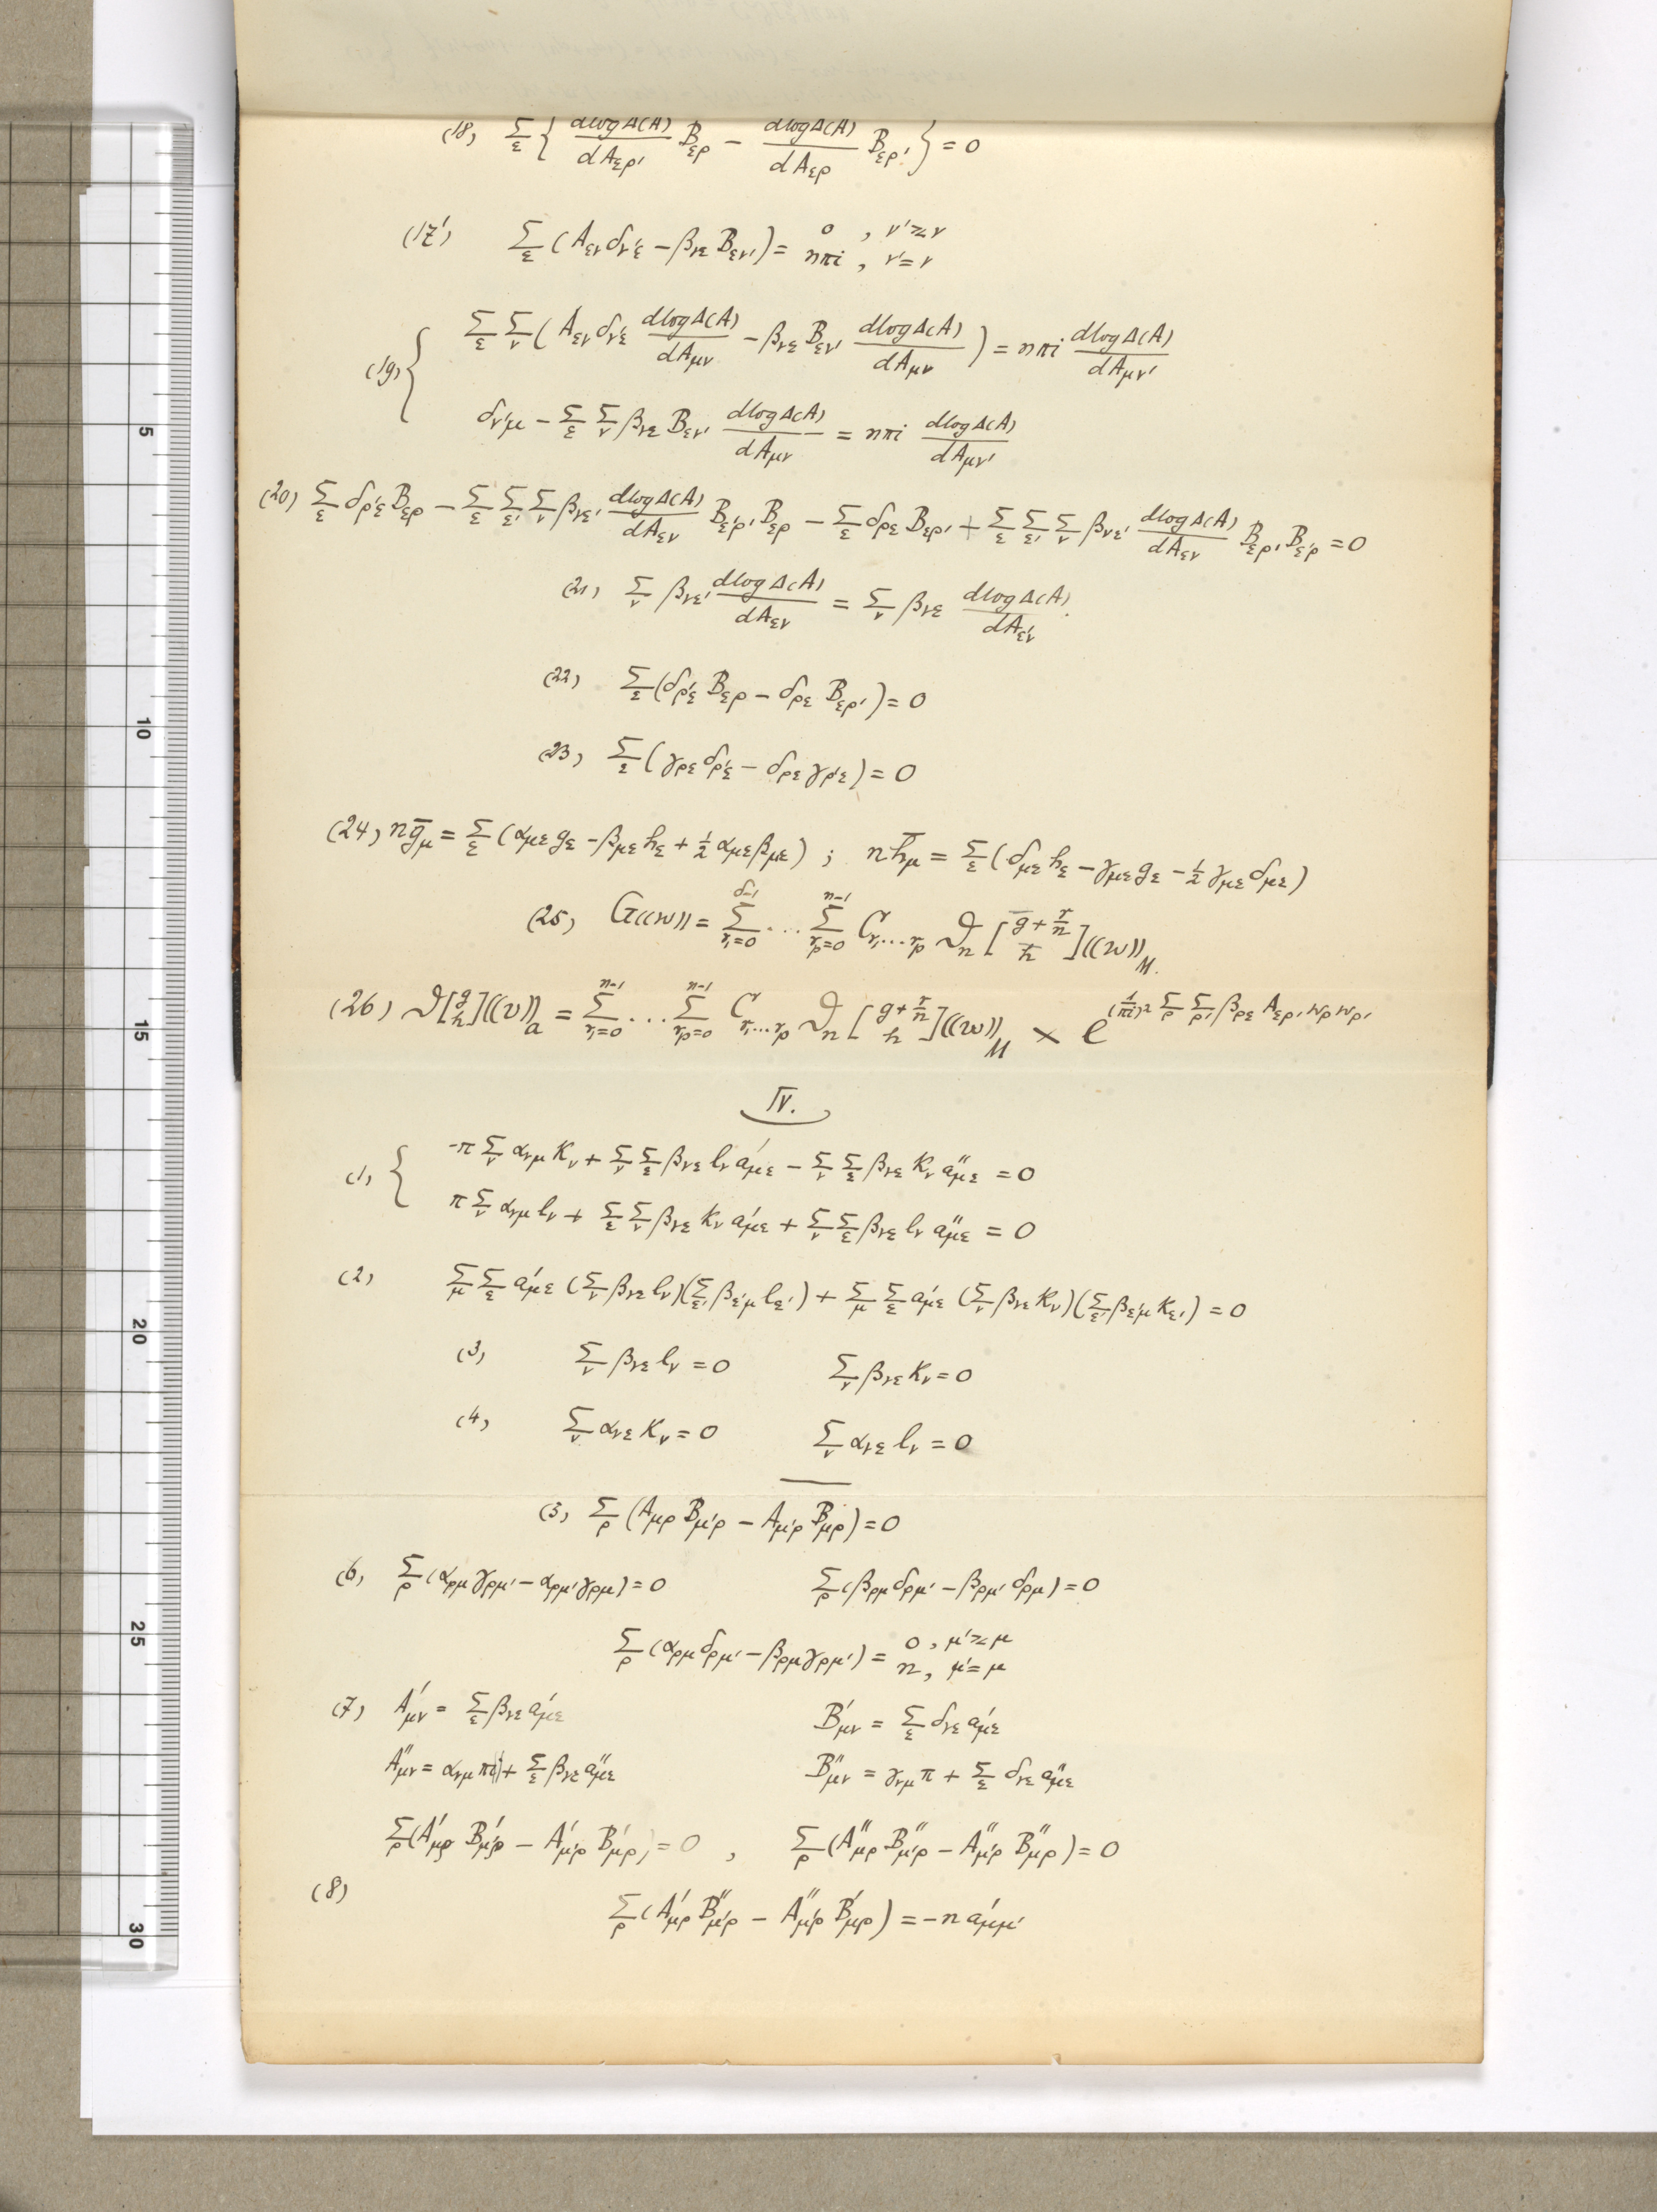 (18) Σ_ε { dlogΔ(A)/dA_ερ' B_ερ − dlogΔ(A)/dA_ερ B_ερ' } = 0
(17') Σ_ε (A_εν δ_ν'ε − β_νε B_εν') = 0 , ν' ≷ ν
nπi , ν' = ν
(19) { Σ_ε Σ_ν ( A_εν δ_ν'ε dlogΔ(A)/dA_μν − β_νε B_εν' dlogΔ(A)/dA_μν ) = nπi dlogΔ(A)/dA_μν'
δ_ν'μ − Σ_ε Σ_ν β_νε B_εν' dlogΔ(A)/dA_μν = nπi dlogΔ(A)/dA_μν'
(20) Σ_ε δ_ρ'ε B_ερ − Σ_ε Σ_ε' Σ_ν β_νε' dlogΔ(A)/dA_εν B_ε'ρ' B_ερ − Σ_ε δ_ρε B_ερ' + Σ_ε Σ_ε' Σ_ν β_νε' dlogΔ(A)/dA_εν B_ερ' B_ε'ρ = 0
(21) Σ_ν β_νε' dlogΔ(A)/dA_εν = Σ_ν β_νε dlogΔ(A)/dA_ε'ν .
(22) Σ_ε (δ_ρ'ε B_ερ − δ_ρε B_ερ') = 0
(23) Σ_ε (γ_ρε δ_ρ'ε − δ_ρε γ_ρ'ε) = 0
(24) n ḡ_μ = Σ_ε (α_με g_ε − β_με h_ε + 1/2 α_με β_με) ; n h̄_μ = Σ_ε (δ_με h_ε − γ_με g_ε − 1/2 γ_με δ_με)
(25) G((w)) = Σ_{r₁=0}^{δ-1} ... Σ_{r_p=0}^{n-1} C_{r₁...r_p} ϑ_n [ḡ + r/n / h̄]((w))_M.
(26) ϑ[g/h]((v))_a = Σ_{r₁=0}^{n-1} ... Σ_{r_p=0}^{n-1} C_{r₁...r_p} ϑ_n [g + r/n / h]((w))_M × e^{(1/πi)² Σ_ρ Σ_ρ' β_ρε A_ερ' w_ρ w_ρ'}
IV.
(1) { −π Σ_ν α_νμ K_ν + Σ_ν Σ_ε β_νε l_ν a'_με − Σ_ν Σ_ε β_νε K_ν a''_με = 0
π Σ_ν α_νμ l_ν + Σ_ε Σ_ν β_νε K_ν a'_με + Σ_ν Σ_ε β_νε l_ν a''_με = 0
(2) Σ_μ Σ_ε a'_με (Σ_ν β_νε l_ν)(Σ_ε' β_ε'μ l_ε') + Σ_μ Σ_ε a'_με (Σ_ν β_νε K_ν)(Σ_ε' β_ε'μ K_ε') = 0
(3) Σ_ν β_νε l_ν = 0 Σ_ν β_νε K_ν = 0
(4) Σ_ν α_νε K_ν = 0 Σ_ν α_νε l_ν = 0
(5) Σ_ρ (A_μρ B_μ'ρ − A_μ'ρ B_μρ) = 0
(6) Σ_ρ (α_ρμ γ_ρμ' − α_ρμ' γ_ρμ) = 0 Σ_ρ (β_ρμ δ_ρμ' − β_ρμ' δ_ρμ) = 0
Σ_ρ (α_ρμ δ_ρμ' − β_ρμ γ_ρμ') = 0 , μ' ≷ μ
n , μ' = μ
(7) A'_μν = Σ_ε β_νε a'_με B'_μν = Σ_ε δ_νε a'_με
A''_μν = α_νμ π + Σ_ε β_νε a''_με B''_μν = γ_νμ π + Σ_ε δ_νε a''_με
Σ_ρ (A'_μρ B'_μ'ρ − A'_μ'ρ B'_μρ) = 0 , Σ_ρ (A''_μρ B''_μ'ρ − A''_μ'ρ B''_μρ) = 0
(8) Σ_ρ (A'_μρ B''_μ'ρ − A''_μ'ρ B'_μρ) = −n a'_μμ'
5
10
15
20
25
30